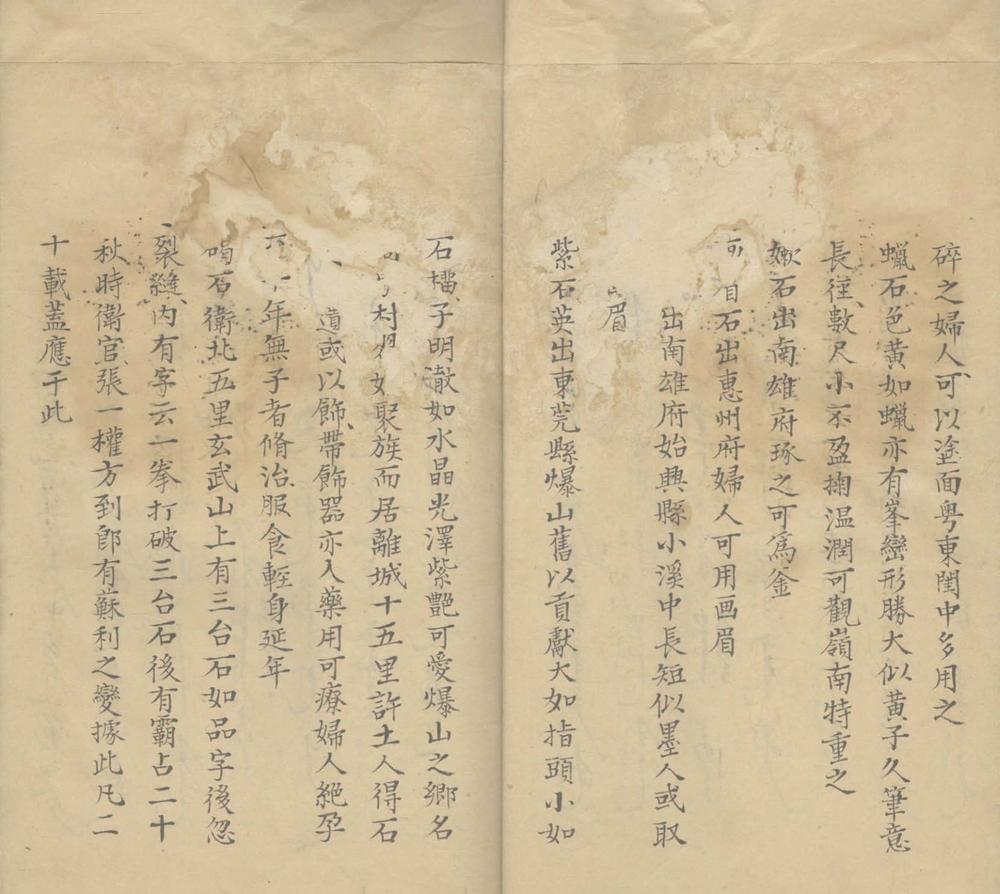 碎之婦人可以塗面粤東閨中多用之
蠟石色黃如蠟亦有峯巒形勝大似黃子久筆意
長徃數尺小不盈掬温潤可觀嶺南特重之
嫩石出南雄府琢之可爲釜
石出惠州府婦人可用画眉
出南雄府始興縣小溪中長短似墨人或取
眉
紫石英出東莞縣爆山舊以貢獻大如指頭小如
石榴子明澈如水晶光澤紫艷可愛爆山之鄉名
村聚族而居離城十五里許土人得石
遺或以飾帶飾器亦入藥用可療婦人絕孕
年無子者脩治服食輕身延年
喝石衛北五里玄武山上有三台石如品字後忽
裂縫內有字云一拳打破三台石後有霸占二十
秋時衛官張一權方到郎有蘇利之變據此凡二
十載蓋應于此